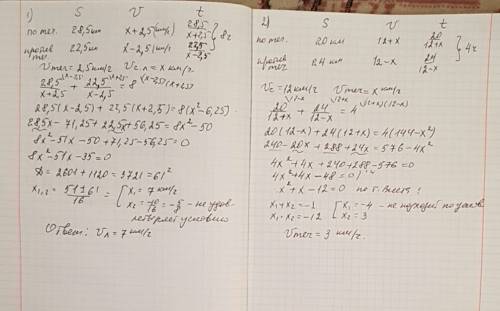 1) S V t
по теч. 28,5 км x+2,5 (км/ч) 28,5/(x+2,5) } 8ч
против теч. 22,5 км x-2,5 км/ч 22,5/(x-2,5)
Vтеч = 2,5 км/ч Vс.л. = x км/ч.
28,5/(x+2,5) \(x-2,5) + 22,5/(x-2,5) \(x+2,5) = 8 \(x-2,5)(x+2,5)
28,5(x-2,5) + 22,5(x+2,5) = 8(x²-6,25)
28,5x - 71,25 + 22,5x + 56,25 = 8x² - 50
8x² - 51x - 50 + 71,25 - 56,25 = 0
8x² - 51x - 35 = 0
D = 2601 + 1120 = 3721 = 61²
x₁,₂ = (51±61)/16 = [ x₁ = 7 км/ч
x₂ = -10/16 = -5/8 - не удов-
летворяет условию
Ответ: Vл = 7 км/ч
2) S V t
по теч. 20 км 12+x 20/(12+x) } 4ч
против теч. 24 км 12-x 24/(12-x)
Vс = 12 км/ч Vтеч = x км/ч
20/(12+x) \(12-x) + 24/(12-x) \(12+x) = 4 \(12+x)(12-x)
20(12-x) + 24(12+x) = 4(144-x²)
240 - 20x + 288 + 24x = 576 - 4x²
4x² + 4x + 240 + 288 - 576 = 0
4x² + 4x - 48 = 0 | :4
x² + x - 12 = 0 по т. Виета:
x₁ + x₂ = -1 [ x₁ = -4 - не подходит по услов.
x₁ · x₂ = -12 x₂ = 3
Vтеч = 3 км/ч.